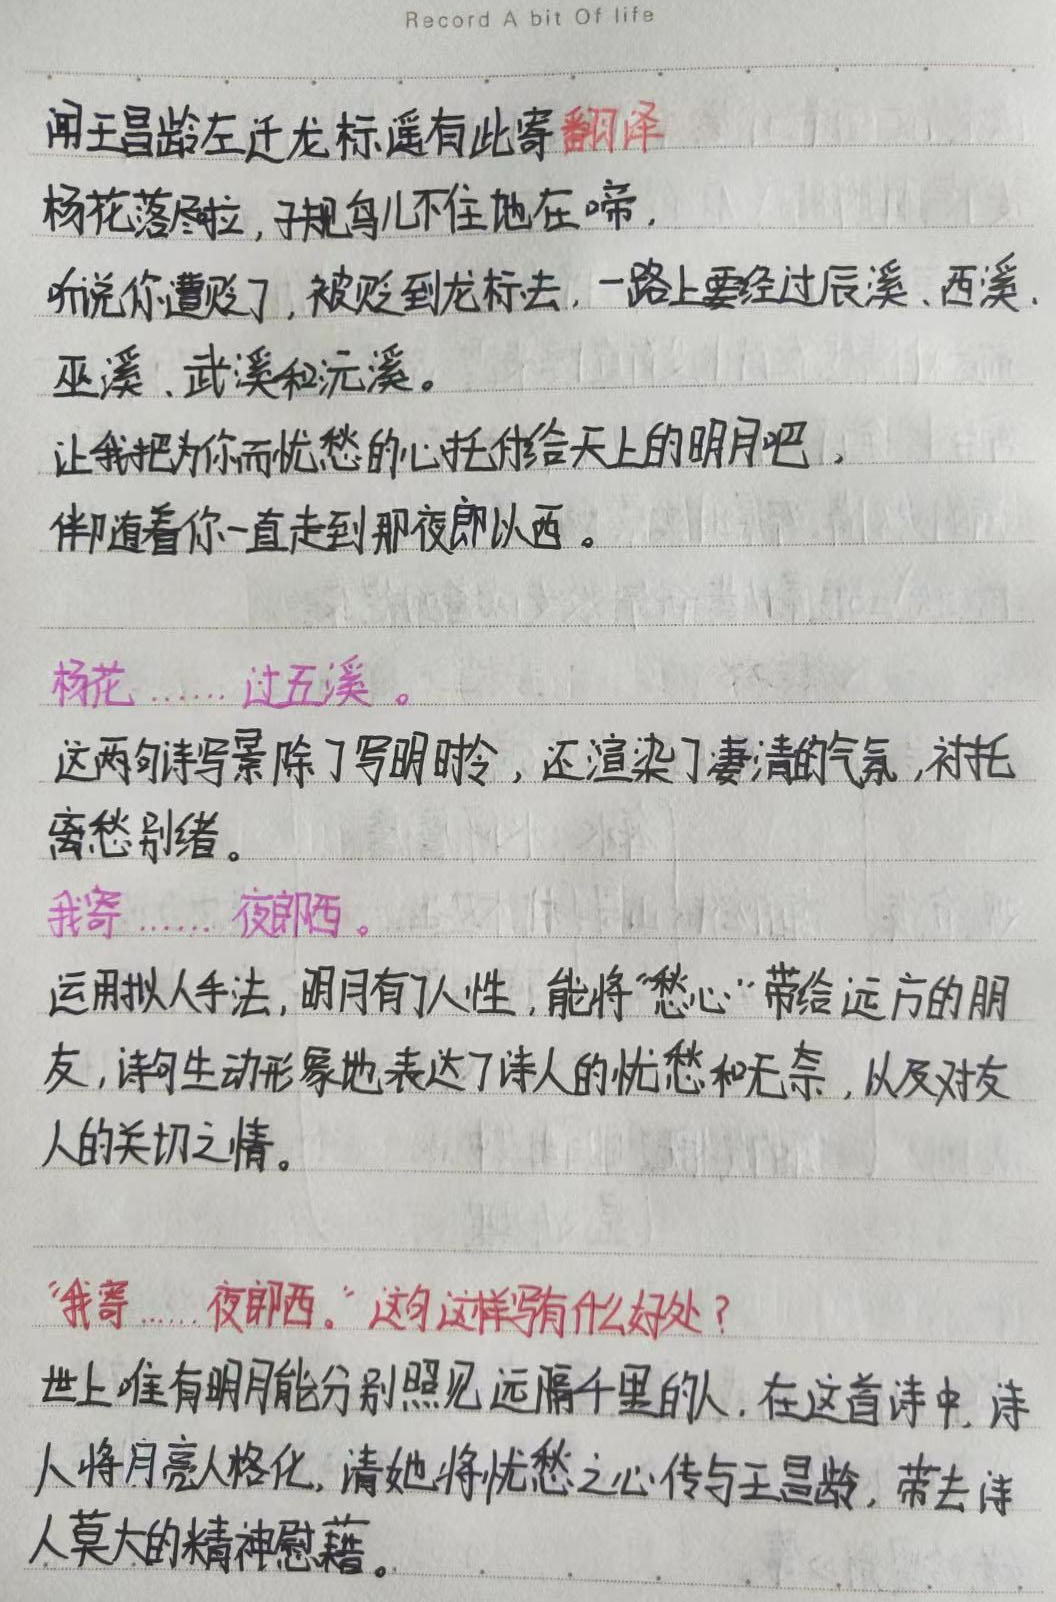 Record A bit Of life
闻王昌龄左迁龙标遥有此寄翻译
杨花落尽啦,子规鸟儿不住地在啼,
听说你遭贬了,被贬到龙标去,一路上要经过辰溪、西溪、
巫溪、武溪和沅溪。
让我把为你而忧愁的心托付给天上的明月吧,
伴随着你一直走到那夜郎以西。
杨花……过五溪。
这两句诗写景除了写明时令,还渲染了凄清的气氛,衬托
离愁别绪。
我寄……夜郎西。
运用拟人手法,明月有了人性,能将“愁心”带给远方的朋
友,诗句生动形象地表达了诗人的忧愁和无奈,以及对友
人的关切之情。
“我寄……夜郎西。”这句这样写有什么好处?
世上唯有明月能分别照见远隔千里的人,在这首诗中,诗
人将月亮人格化,请她将忧愁之心传与王昌龄,带去诗
人莫大的精神慰藉。